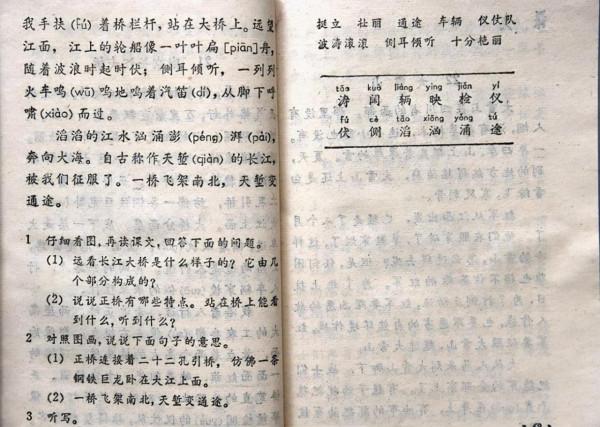 我手扶(fú)着桥栏杆，站在大桥上。远望
江面，江上的轮船像一叶叶扁[piān]舟，
随着波浪时起时伏；侧耳倾听，一列列
火车呜(wū)呜地鸣着汽笛(dí)，从脚下呼
啸(xiào)而过。
滔滔的江水汹涌澎(péng)湃(pài)，
奔向大海。自古称作天堑(qiàn)的长江，
被我们征服了。一桥飞架南北，天堑变
通途。
1 仔细看图，再读课文，回答下面的问题。
(1) 远看长江大桥是什么样子的？它由几
个部分构成的？
(2) 说说正桥有哪些特点。站在桥上能看
到什么，听到什么？
2 对照图画，说说下面句子的意思。
(1) 正桥连接着二十二孔引桥，仿佛一条
钢铁巨龙卧在大江上面。
(2) 一桥飞架南北，天堑变通途。
3 听写。
挺立 壮丽 通途 车辆 仪仗队
波涛滚滚 侧耳倾听 十分艳丽
tāo kuò liàng yìng jiǎn yí
涛 阔 辆 映 检 仪
fú cè tāo xiōng yǒng tú
伏 侧 滔 汹 涌 途